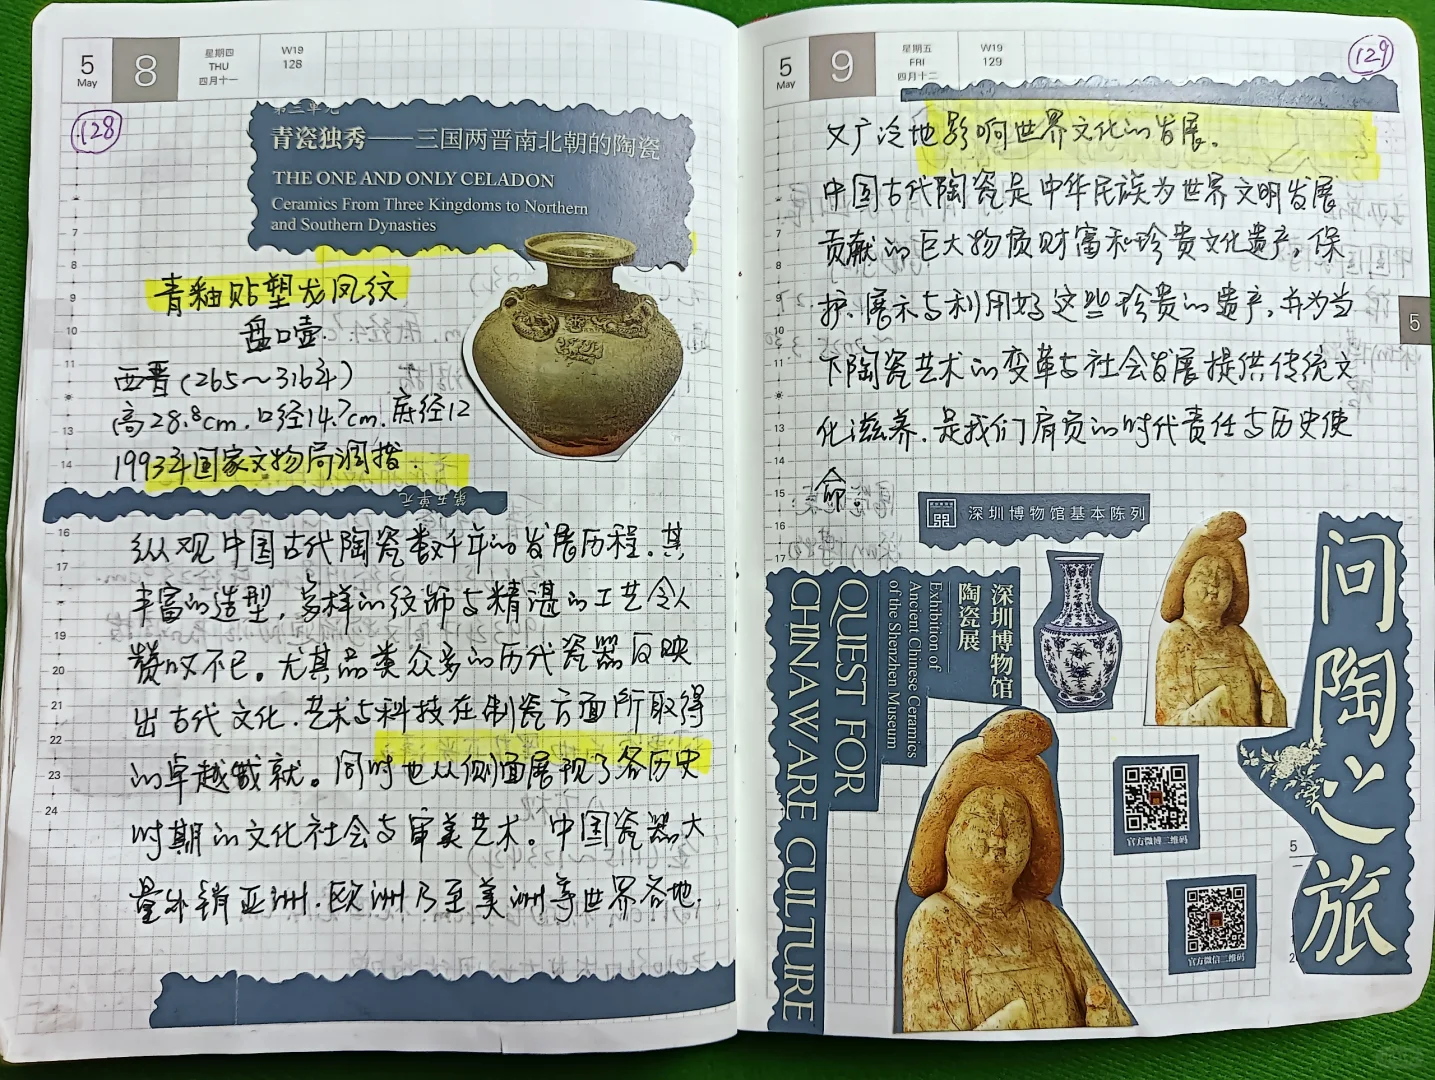 5
May
8
星期四
THU
四月十一
W19
128
128
第三单元
青瓷独秀——三国两晋南北朝的陶瓷
THE ONE AND ONLY CELADON
Ceramics From Three Kingdoms to Northern
and Southern Dynasties
7
8
9
10
11
12
13
14
青釉贴塑龙凤纹
盘口壶
西晋(265～316年)
高28.8cm.口径14.7cm.底径12
1993年国家文物局调拨.
第五单元
16
17
18
19
20
21
22
23
24
纵观中国古代陶瓷数千年的发展历程.其
丰富的造型,多样的纹饰与精湛的工艺令人
赞叹不已。尤其品类众多的历代瓷器反映
出古代文化.艺术与科技在制瓷方面所取得
的卓越成就。同时也从侧面展现了各历史
时期的文化社会与审美艺术。中国瓷器大
量外销亚洲.欧洲乃至美洲等世界各地,
5
May
9
星期五
FRI
四月十二
W19
129
129
又广泛地影响世界文化的发展.
中国古代陶瓷是中华民族为世界文明发展
贡献的巨大物质财富和珍贵文化遗产,保
护、展示与利用好这些珍贵的遗产,并为当
下陶瓷艺术的变革与社会发展提供传统文
化滋养.是我们肩负的时代责任与历史使
命.
7
8
9
10
11
12
13
14
15
16
17
5
深圳博物馆基本陈列
深圳博物馆
陶瓷展
Exhibition of
Ancient Chinese Ceramics
of the Shenzhen Museum
QUEST FOR
CHINAWARE CULTURE
问陶之旅
官方微博二维码
官方微信二维码
5
2